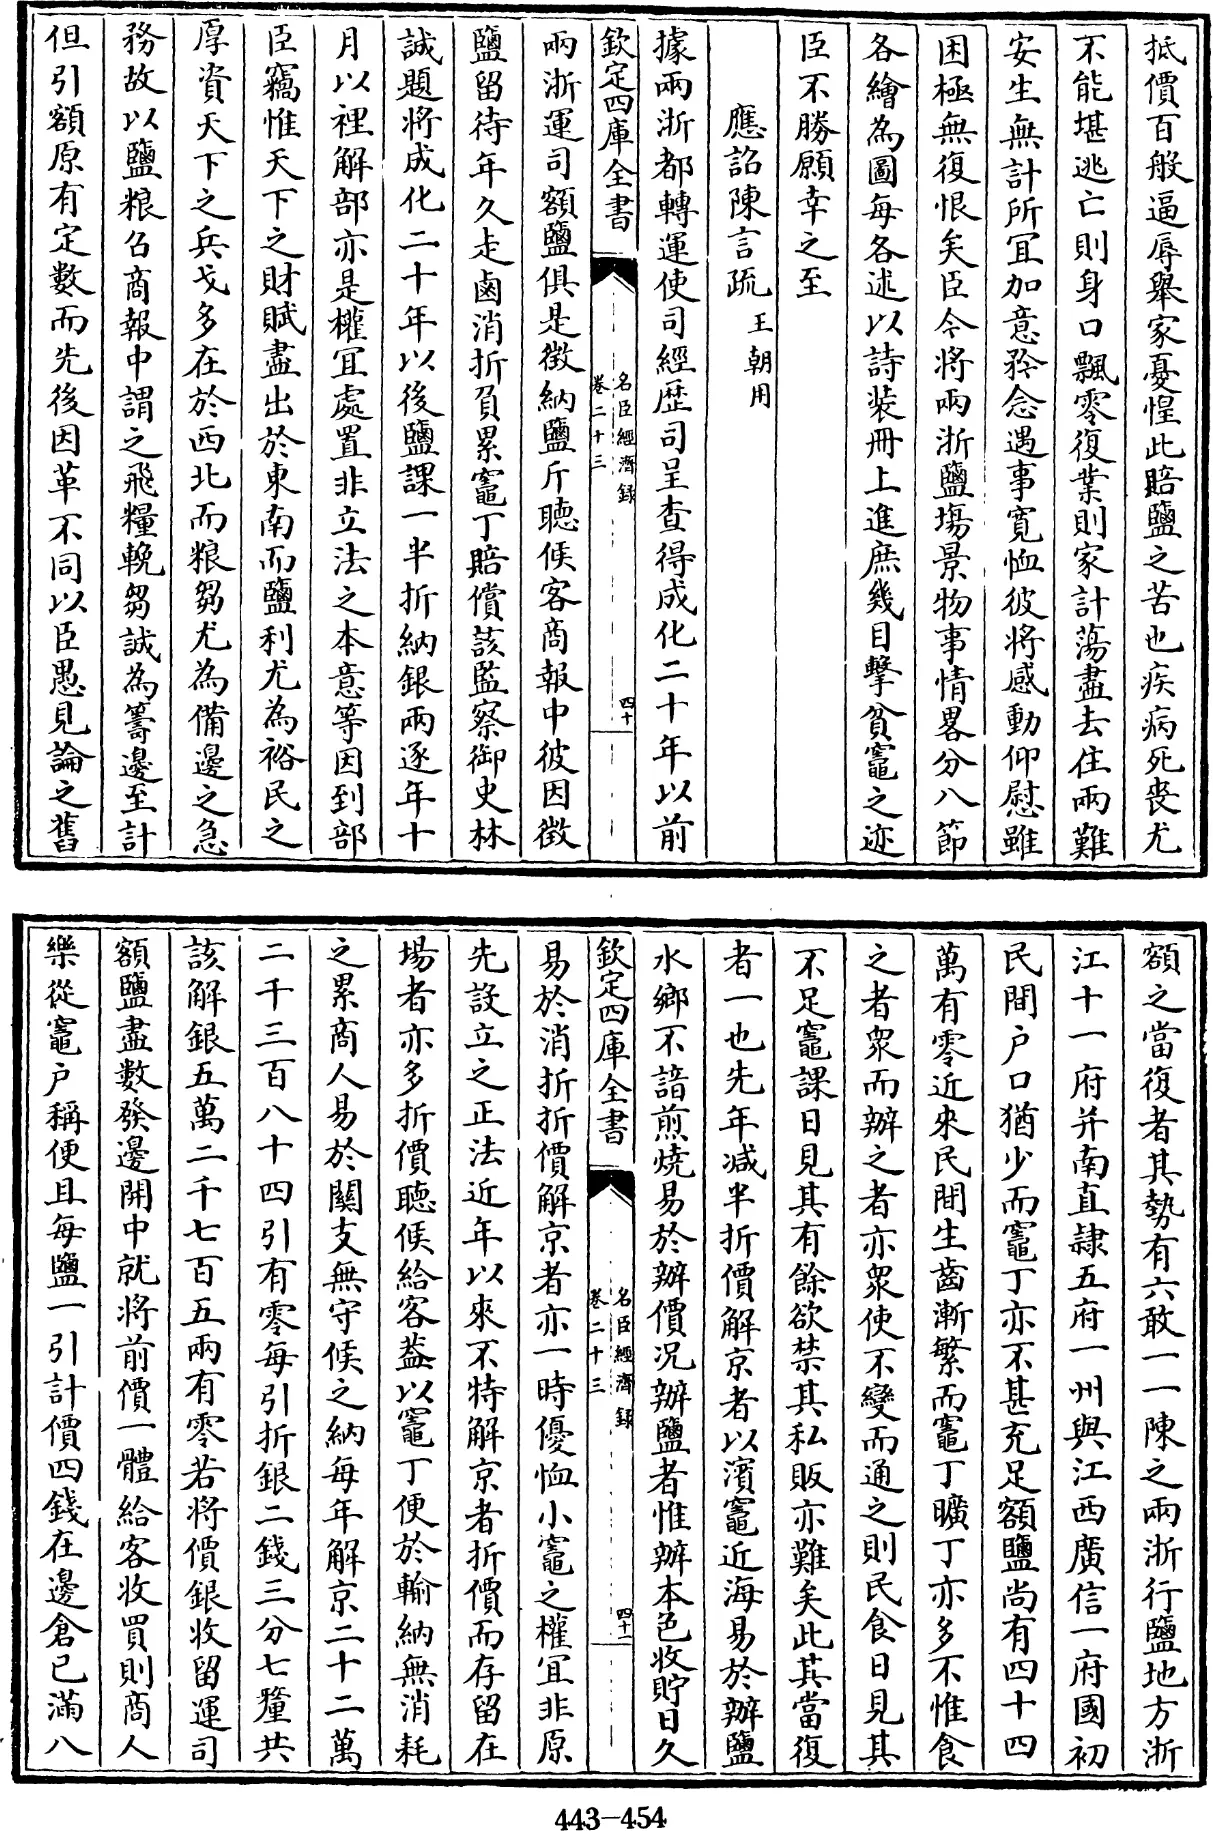 抵價百般逼辱舉家憂惶此賠鹽之苦也疾病死喪尤
不能堪逃亡則身口飄零復業則家計蕩盡去住兩難
安生無計所宜加意矜念遇事寛恤彼將感動仰慰雖
困極無復恨矣臣今將兩浙鹽塲景物事情畧分八節
各繪為圖每各述以詩装冊上進庶幾目擊貧竈之迹
臣不勝願幸之至
應詔陳言疏 王朝用
據兩浙都轉運使司經歴司呈查得成化二十年以前
欽定四庫全書
名臣經濟録
卷二十三
四十
兩浙運司額鹽俱是徴納鹽斤聴候客商報中彼因徴
鹽留待年久走鹵消折負累竈丁賠償該監察御史林
誠題將成化二十年以後鹽課一半折納銀兩逐年十
月以裡解部亦是權宜處置非立法之本意等因到部
臣竊惟天下之財賦盡出於東南而鹽利尤為裕民之
厚資天下之兵戈多在於西北而粮芻尤為備邊之急
務故以鹽粮召商報中謂之飛糧輓芻誠為籌邊至計
但引額原有定數而先後因革不同以臣愚見論之舊
額之當復者其勢有六敢一一陳之兩浙行鹽地方浙
江十一府并南直隷五府一州與江西廣信一府國初
民間户口猶少而竈丁亦不甚充足額鹽尚有四十四
萬有零近來民間生齒漸繁而竈丁曠丁亦多不惟食
之者衆而辦之者亦衆使不變而通之則民食日見其
不足竈課日見其有餘欲禁其私販亦難矣此其當復
者一也先年減半折價解京者以濱竈近海易於辦鹽
水鄉不諳煎燒易於辦價况辦鹽者惟辦本色收貯日久
欽定四庫全書
名臣經濟録
卷二十三
四十一
易於消折折價解京者亦一時優恤小竈之權宜非原
先設立之正法近年以來不特解京者折價而存留在
場者亦多折價聴候給客葢以竈丁便於輸納無消耗
之累商人易於關支無守候之納每年解京二十二萬
二千三百八十四引有零每引折銀二錢三分七釐共
該解銀五萬二千七百五兩有零若将價銀收留運司
額鹽盡數發邊開中就將前價一體給客收買則商人
樂從竈户稱便且每鹽一引計價四錢在邊倉已滿八
443-454